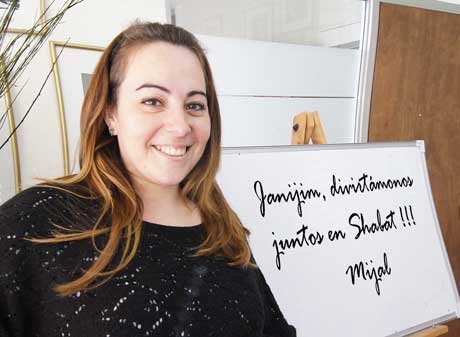 Janijim, divirtámonos
juntos en Shabat !!!
Mijal